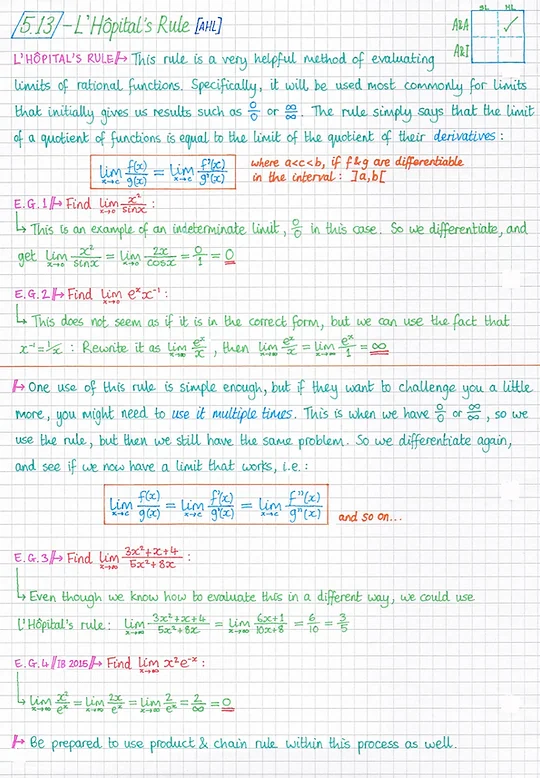 SL HL
5.13 - L'Hôpital's Rule [AHL]
A&A ✓
A&I
L'HÔPITAL'S RULE → This rule is a very helpful method of evaluating
limits of rational functions. Specifically, it will be used most commonly for limits
that initially gives us results such as 0/0 or ∞/∞. The rule simply says that the limit
of a quotient of functions is equal to the limit of the quotient of their derivatives:
lim x→c f(x)/g(x) = lim x→c f'(x)/g'(x) where a<c<b, if f & g are differentiable
in the interval: ]a,b[
E.G.1 → Find lim x→0 x²/sinx :
↳ This is an example of an indeterminate limit, 0/0 in this case. So we differentiate, and
get lim x→0 x²/sinx = lim x→0 2x/cosx = 0/1 = 0
E.G.2 → Find lim x→∞ eˣx⁻¹ :
↳ This does not seem as if it is in the correct form, but we can use the fact that
x⁻¹ = 1/x : Rewrite it as lim x→∞ eˣ/x, then lim x→∞ eˣ/x = lim x→∞ eˣ/1 = ∞
→ One use of this rule is simple enough, but if they want to challenge you a little
more, you might need to use it multiple times. This is when we have 0/0 or ∞/∞, so we
use the rule, but then we still have the same problem. So we differentiate again,
and see if we now have a limit that works, i.e.:
lim x→c f(x)/g(x) = lim x→c f'(x)/g'(x) = lim x→c f''(x)/g''(x) and so on...
E.G.3 → Find lim x→∞ 3x²+x+4/5x²+8x :
↳ Even though we know how to evaluate this in a different way, we could use
l'Hôpital's rule: lim x→∞ 3x²+x+4/5x²+8x = lim x→∞ 6x+1/10x+8 = 6/10 = 3/5
E.G.4 / IB 2015 → Find lim x→∞ x²e⁻ˣ :
↳ lim x→∞ x²/eˣ = lim x→∞ 2x/eˣ = lim x→∞ 2/eˣ = 2/∞ = 0
→ Be prepared to use product & chain rule within this process as well.